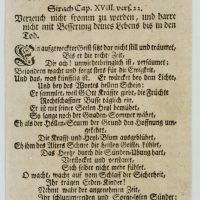 Sirach Cap. XVIII. vers. 22.
Verzeuch nicht fromm zu werden, und harre
nicht mit Besserung deines Lebens bis in
den Tod.
Ein aufgeweckter Geist der nicht still und träumet,
Bis er die recht Zeit,
Die ach! unwiederbringlich ist, versäumet;
Besondern wacht und sorgt stets für die Ewigkeit,
Und das, was künftig ist. Er würcket bey dem Licht,
Und bey des Wortes hellen Schein;
Er sammlet, weil GOtt Kräffte giebt, die Früchte
Rechtschaffner Busse täglich ein.
Er ist mit seiner Seelen Heyl bemühet,
So lange noch der Gnaden-Sommer währet,
Eh als der Höllen-Sturm der Grund der Hoffnung
Die Krafft und Heyl-Blum ausgeblühet,
Eh ihm des Alters Schnee die heissen Geister kühlet,
Das Hertz durch die Sünden-Übung hart,
Verstocket und verstarret,
Sich selber nicht mehr fühlet.
O wacht, wacht auf vom Schlaff der Sicherheit,
Ihr tragen Erden-Kinder!
Nehmt wahr der angenehmen Zeit,
Ihr schlummernden und Sorge-losen Sünder;